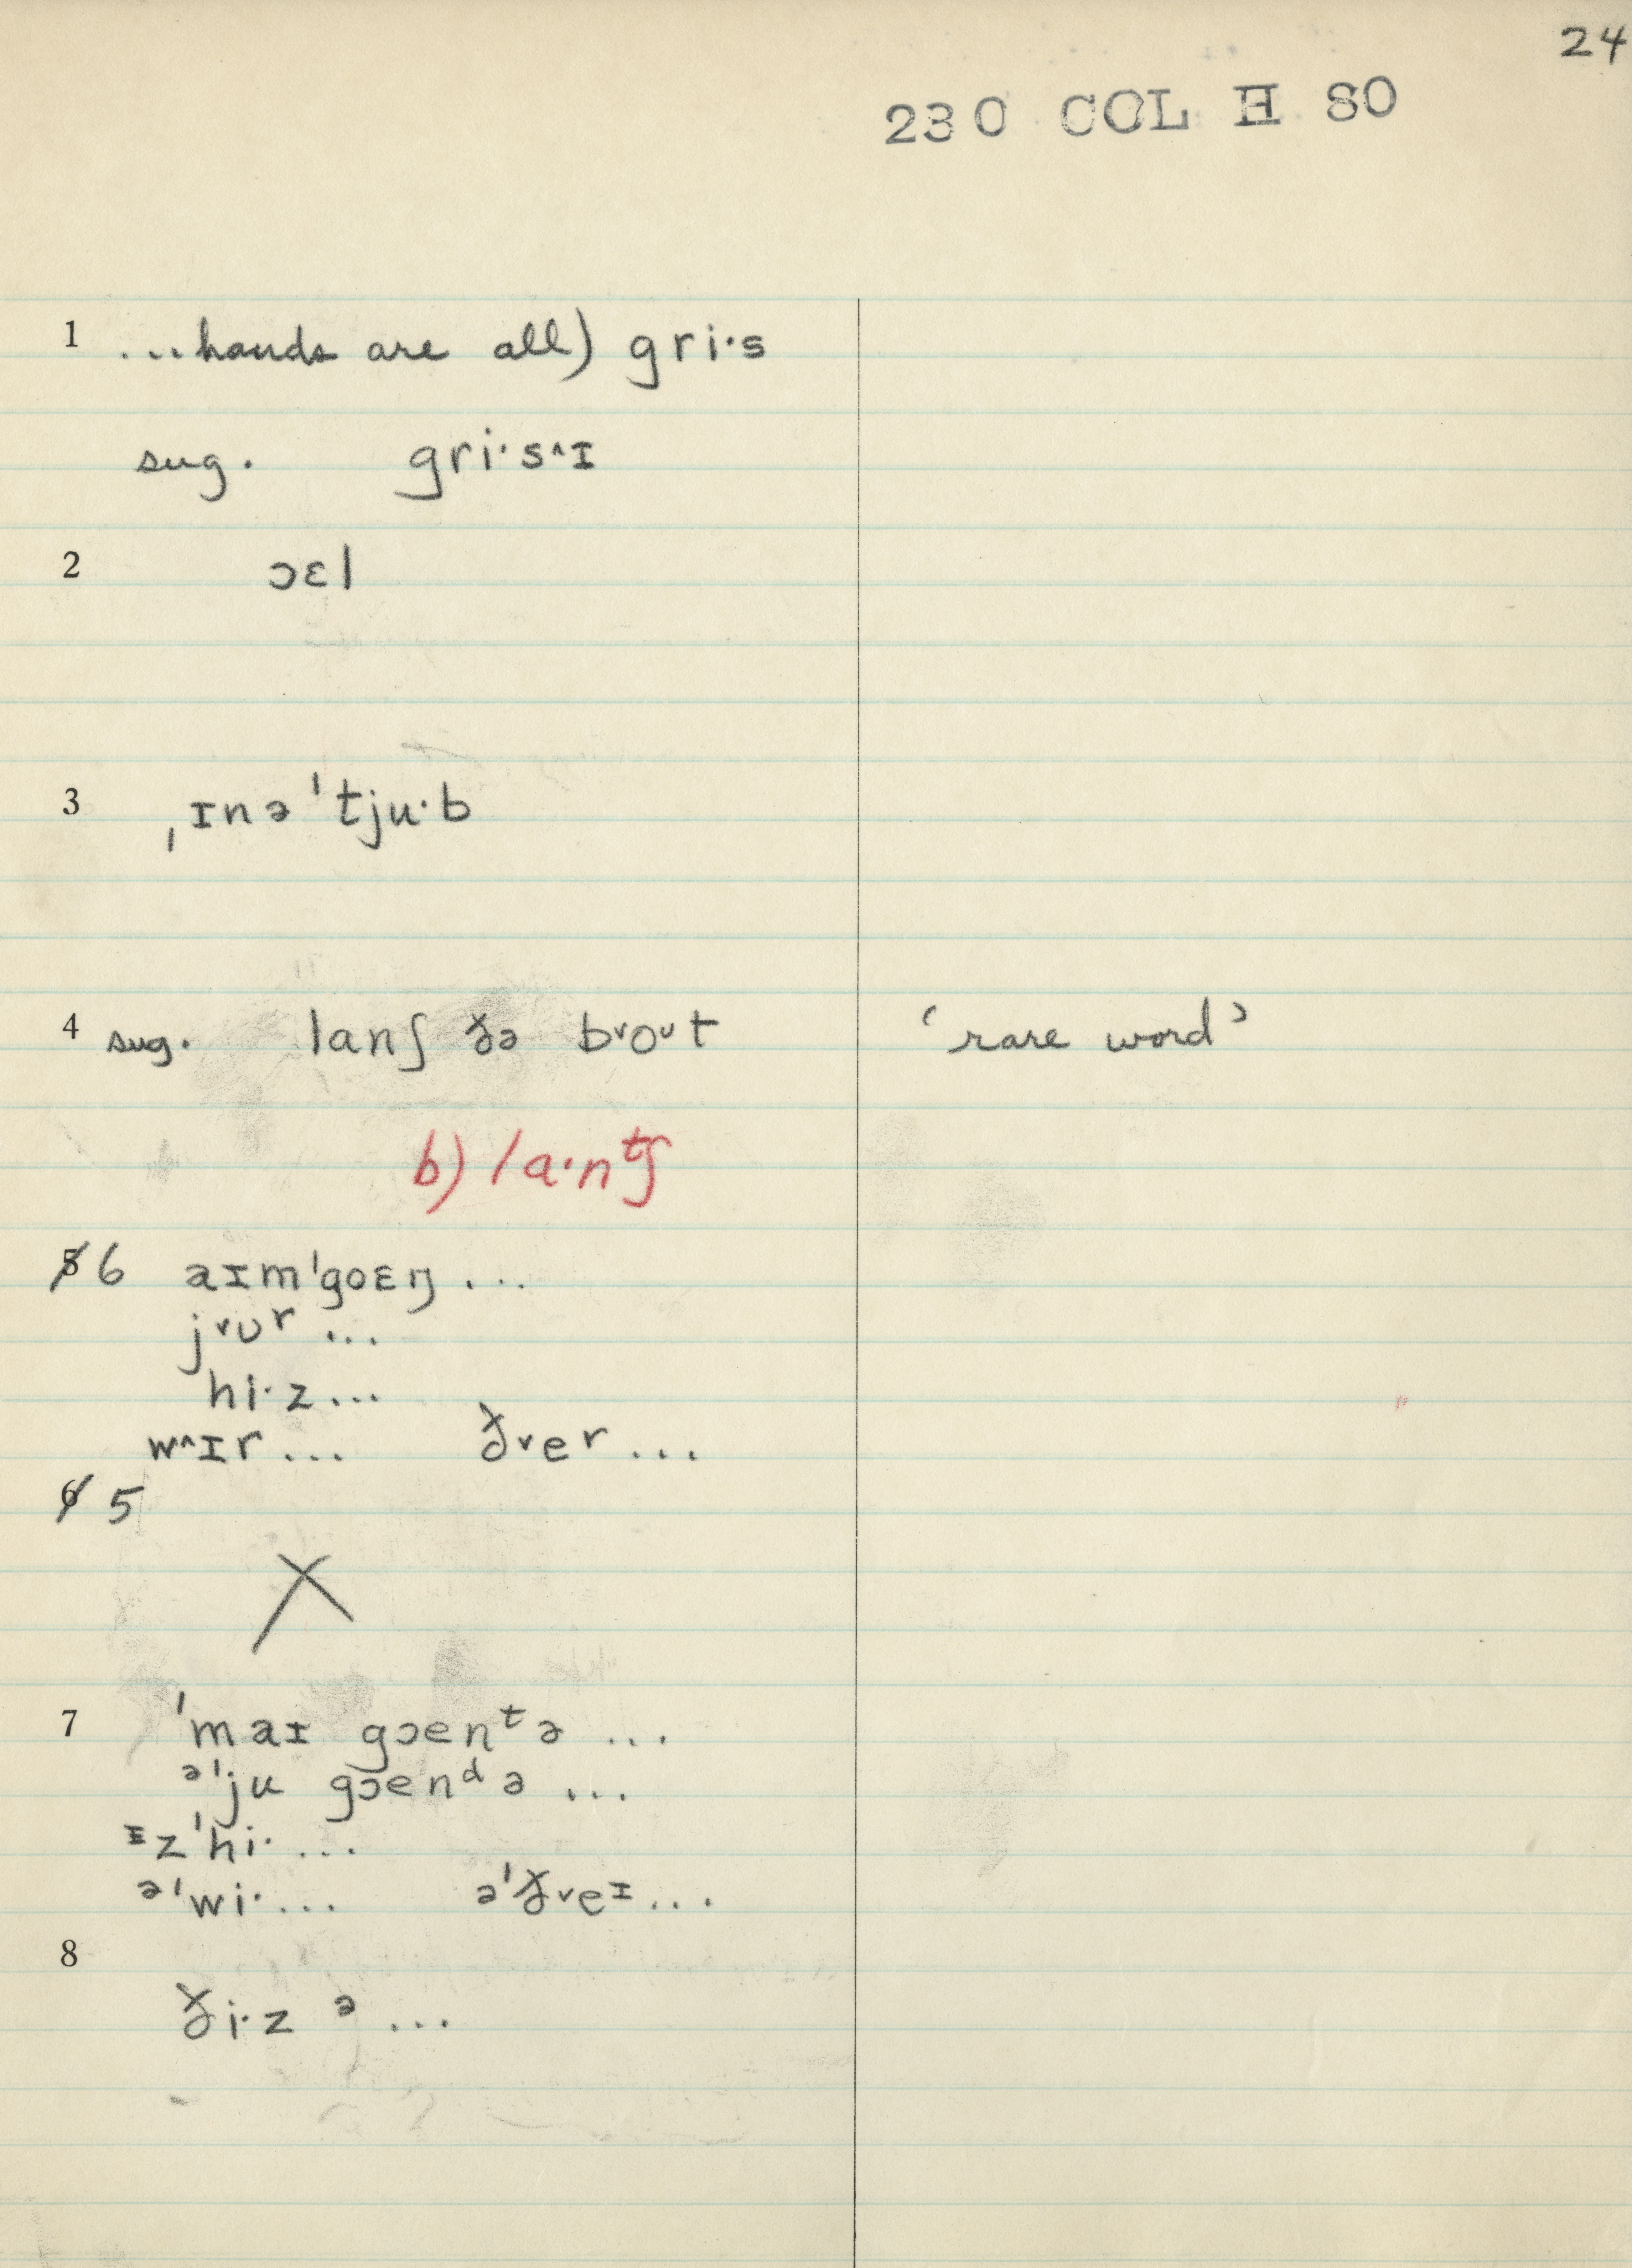 24
230 COL H 80
1 ...hands are all) gri·s
sug. gri·s^ɪ
2 ɔɛl
3 ˌɪnə'tju·b
4 sug. lanʃ ðə bᵛoᶷt ‘rare word’
b) la·nᵗʃ
5 6 aɪm'goɛŋ ...
jᵛʊʳ ...
hi·z...
w^ɪr ... ðᵛeʳ ...
6 5
X
7 'maɪ gɔenᵗə ...
ᵊ'ju gɔenᵈə ...
ᶦz'hi· ...
ᵊ'wi· ... ə'ðᵛeᶦ ...
8
ði·z ᵊ ...